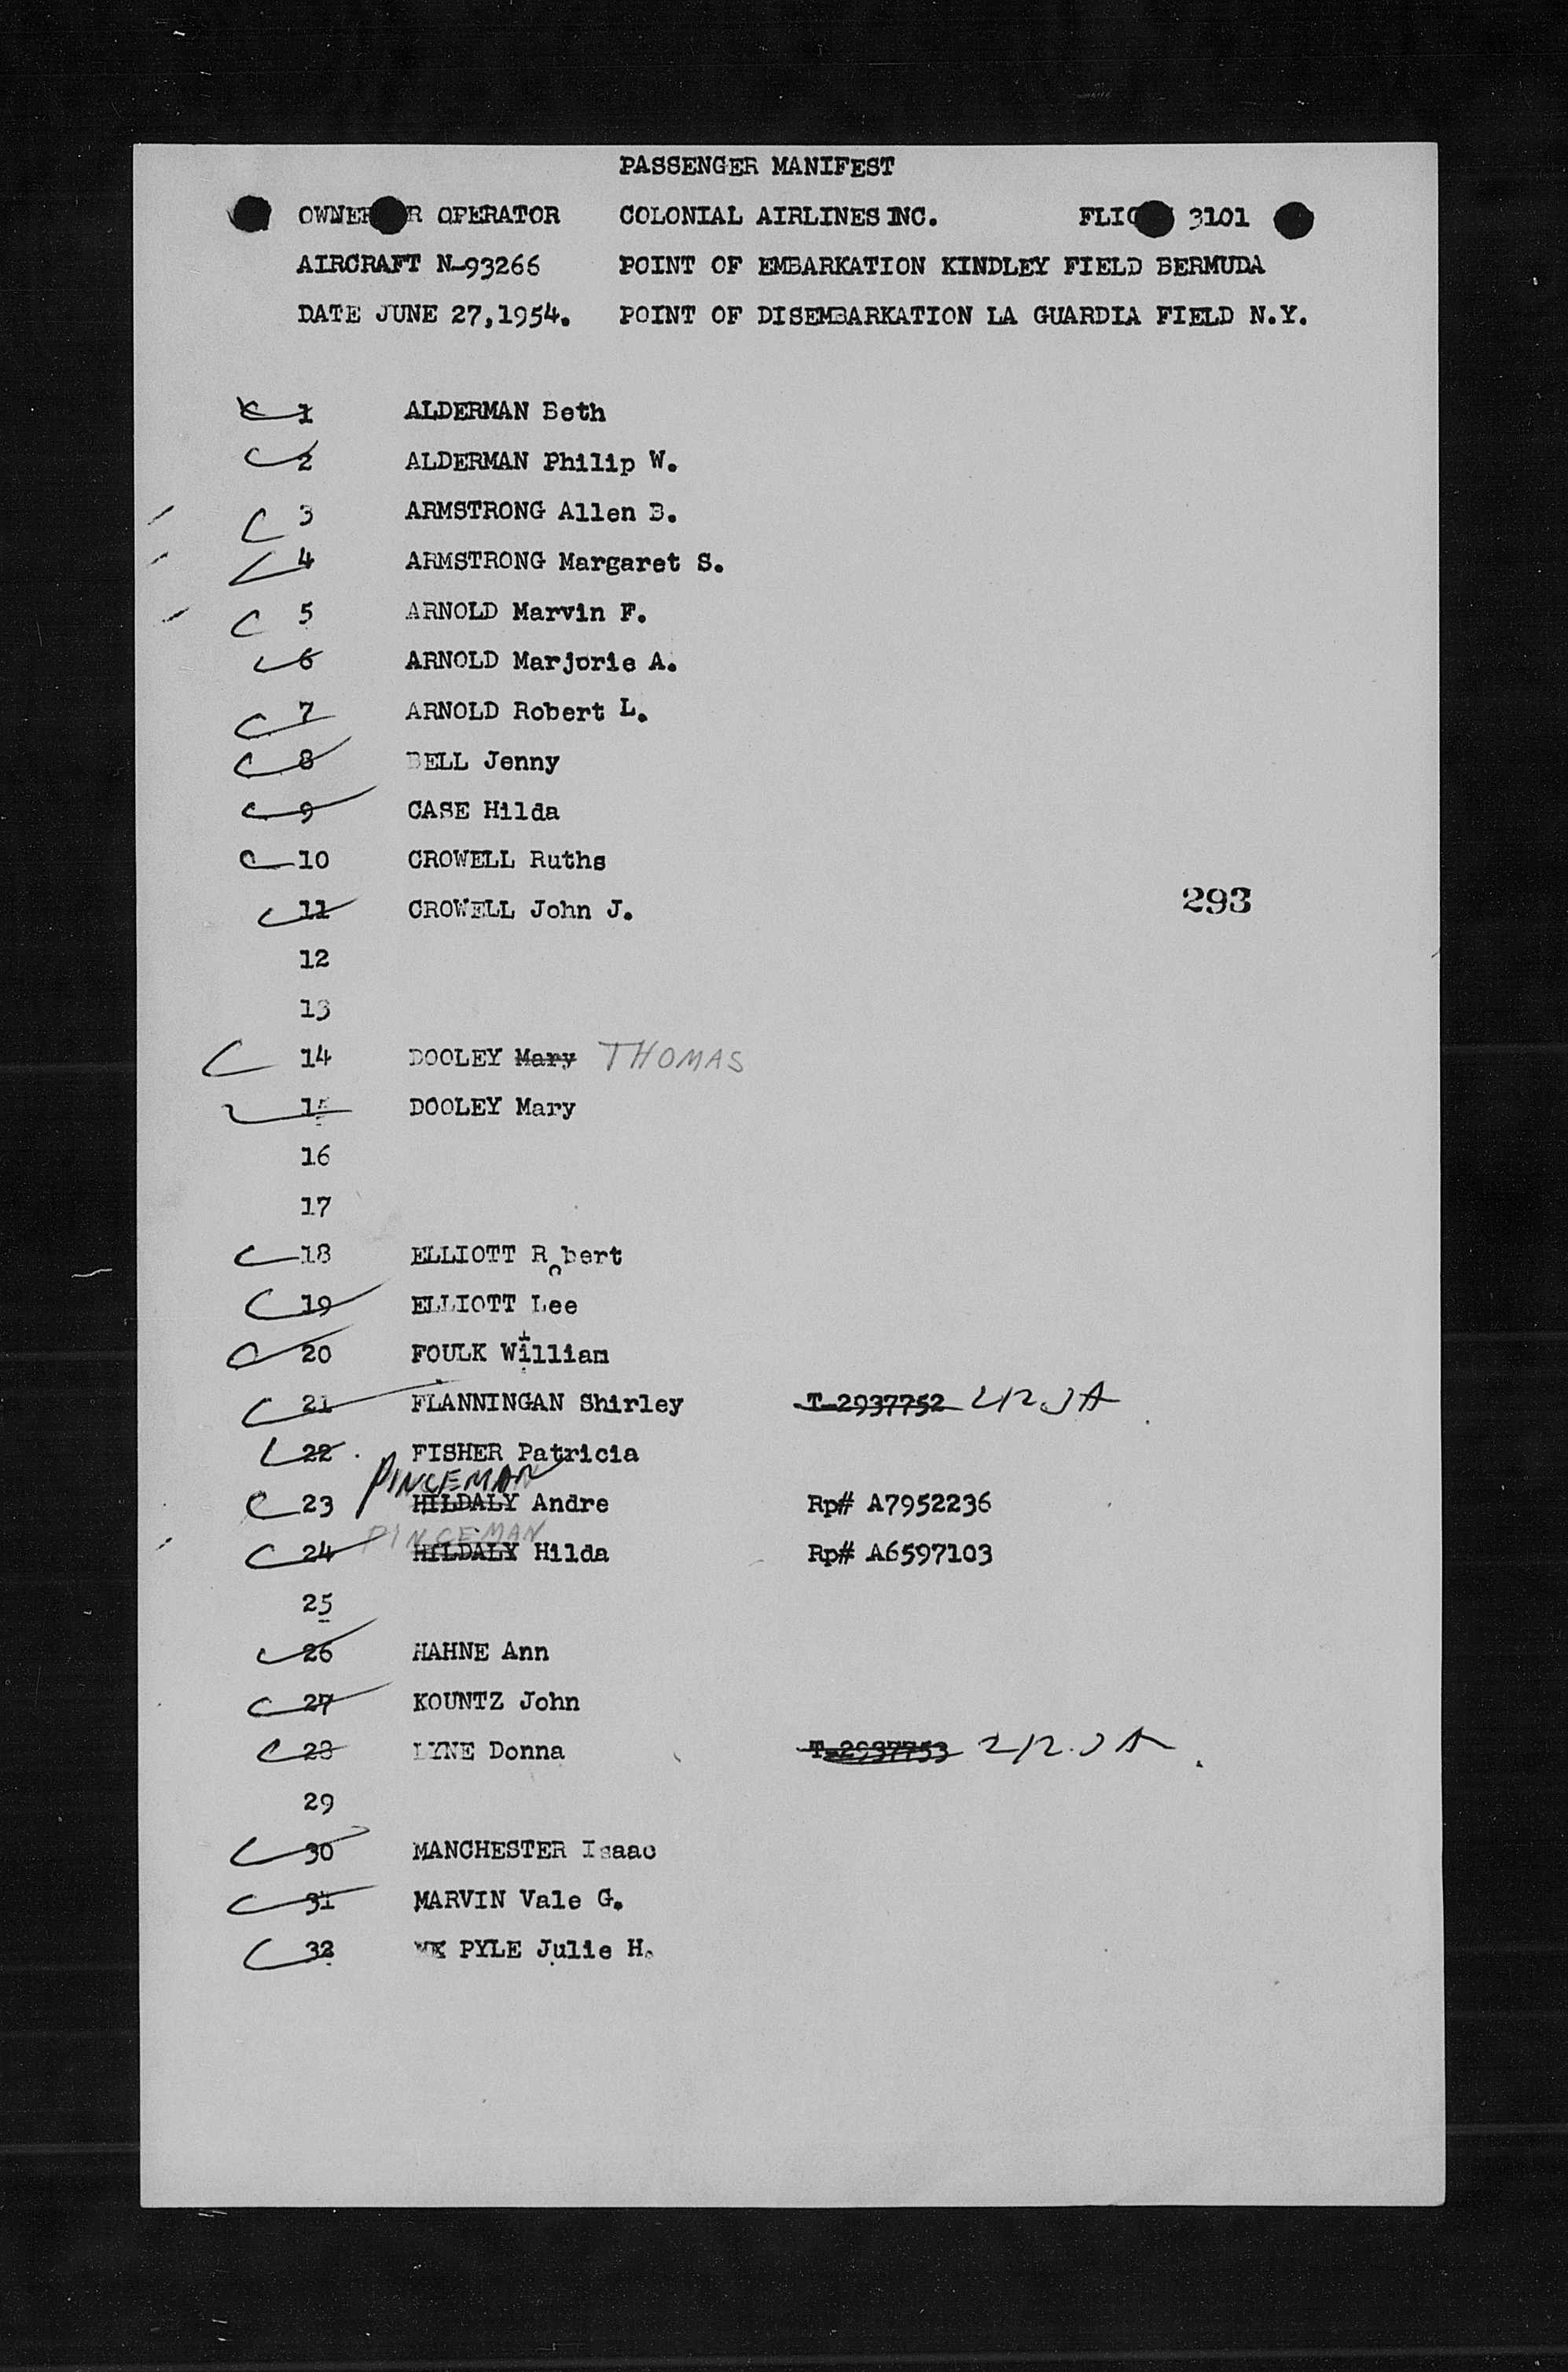 PASSENGER MANIFEST
OWNER OR OPERATOR COLONIAL AIRLINES INC. FLIGHT 3101
AIRCRAFT N-93266 POINT OF EMBARKATION KINDLEY FIELD BERMUDA
DATE JUNE 27,1954. POINT OF DISEMBARKATION LA GUARDIA FIELD N.Y.
1 ALDERMAN Beth
2 ALDERMAN Philip W.
3 ARMSTRONG Allen B.
4 ARMSTRONG Margaret S.
5 ARNOLD Marvin F.
6 ARNOLD Marjorie A.
7 ARNOLD Robert L.
8 BELL Jenny
9 CASE Hilda
10 CROWELL Ruths
11 CROWELL John J. 293
12
13
14 DOOLEY Mary THOMAS
15 DOOLEY Mary
16
17
18 ELLIOTT Robert
19 ELLIOTT Lee
20 FOULK William
21 FLANNINGAN Shirley T-2937752
22 FISHER Patricia
PINCEMAN
23 HILDALY Andre Rp# A7952236
PINCEMAN
24 HILDALY Hilda Rp# A6597103
25
26 HAHNE Ann
27 KOUNTZ John
28 LYNE Donna T-2937753
29
30 MANCHESTER Isaac
31 MARVIN Vale G.
32 PYLE Julie H.